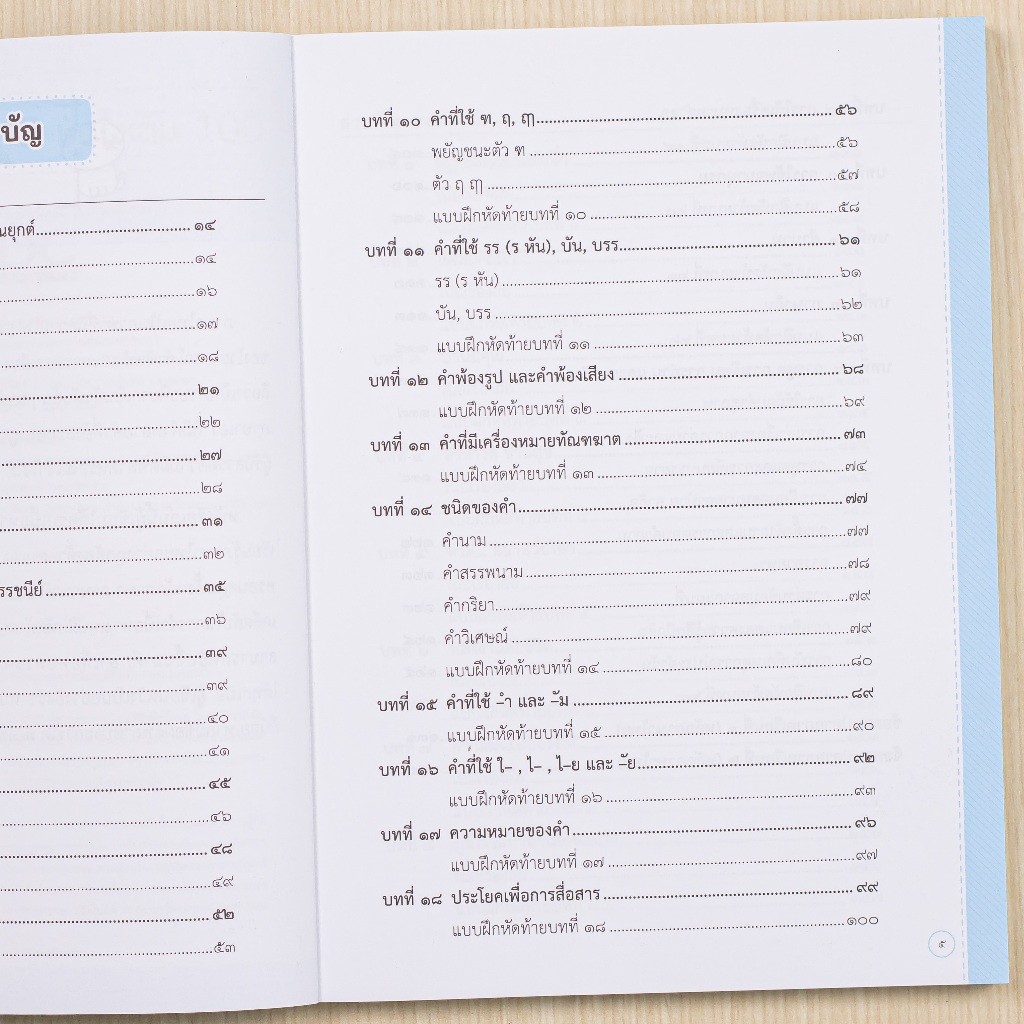 บัญ
ณยุกต์ ๑๔
๑๔
๑๖
๑๗
๑๘
๒๑
๒๒
๒๗
๒๘
๓๑
๓๒
รรชนีย์ ๓๕
๓๖
๓๙
๓๙
๔๐
๔๑
๔๕
๔๖
๔๘
๔๙
๕๒
๕๓
บทที่ ๑๐ คำที่ใช้ ฑ, ฤ, ฤๅ ๕๖
พยัญชนะตัว ฑ ๕๖
ตัว ฤ ฤๅ ๕๗
แบบฝึกหัดท้ายบทที่ ๑๐ ๕๘
บทที่ ๑๑ คำที่ใช้ รร (ร หัน), บัน, บรร ๖๑
รร (ร หัน) ๖๑
บัน, บรร ๖๒
แบบฝึกหัดท้ายบทที่ ๑๑ ๖๓
บทที่ ๑๒ คำพ้องรูป และคำพ้องเสียง ๖๘
แบบฝึกหัดท้ายบทที่ ๑๒ ๖๙
บทที่ ๑๓ คำที่มีเครื่องหมายทัณฑฆาต ๗๓
แบบฝึกหัดท้ายบทที่ ๑๓ ๗๔
บทที่ ๑๔ ชนิดของคำ ๗๗
คำนาม ๗๗
คำสรรพนาม ๗๘
คำกริยา ๗๙
คำวิเศษณ์ ๗๙
แบบฝึกหัดท้ายบทที่ ๑๔ ๘๐
บทที่ ๑๕ คำที่ใช้ –ำ และ –ัม ๘๙
แบบฝึกหัดท้ายบทที่ ๑๕ ๙๐
บทที่ ๑๖ คำที่ใช้ ใ– , ไ– , ไ–ย และ –ัย ๙๒
แบบฝึกหัดท้ายบทที่ ๑๖ ๙๓
บทที่ ๑๗ ความหมายของคำ ๙๖
แบบฝึกหัดท้ายบทที่ ๑๗ ๙๗
บทที่ ๑๘ ประโยคเพื่อการสื่อสาร ๙๙
แบบฝึกหัดท้ายบทที่ ๑๘ ๑๐๐
๕